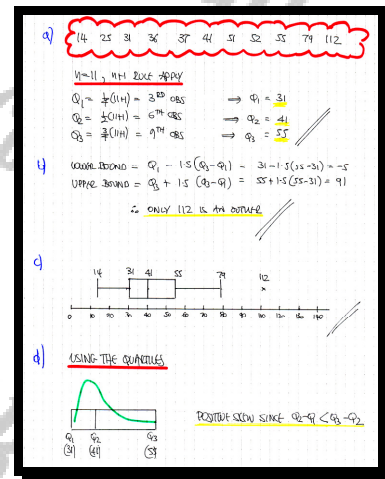 a) 14 25 31 36 37 41 51 52 55 79 112
n=11, n+1 RULE APPLY
Q₁ = ¼(11+1) = 3RD OBS ⇒ Q₁ = 31
Q₂ = ½(11+1) = 6TH OBS ⇒ Q₂ = 41
Q₃ = ¾(11+1) = 9TH OBS ⇒ Q₃ = 55
b) LOWER BOUND = Q₁ - 1.5(Q₃-Q₁) = 31-1.5(55-31) = -5
UPPER BOUND = Q₃ + 1.5(Q₃-Q₁) = 55+1.5(55-31) = 91
∴ ONLY 112 IS AN OUTLIER
c)
14 31 41 55 79 112
0 10 20 30 40 50 60 70 80 90 100 110 120 130 140
d) USING THE QUARTILES
POSITIVE SKEW SINCE Q₂-Q₁ < Q₃-Q₂
Q₁ Q₂ Q₃
(31) (41) (55)